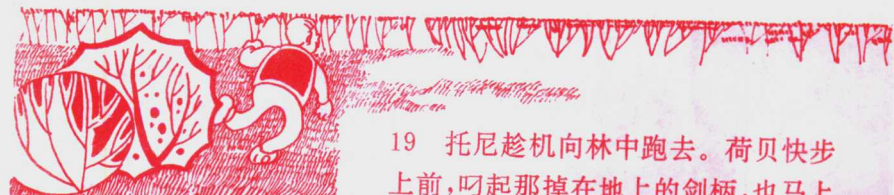 19 托尼趁机向林中跑去。荷贝快步
上前,叼起那掉在地上的剑柄,也马上